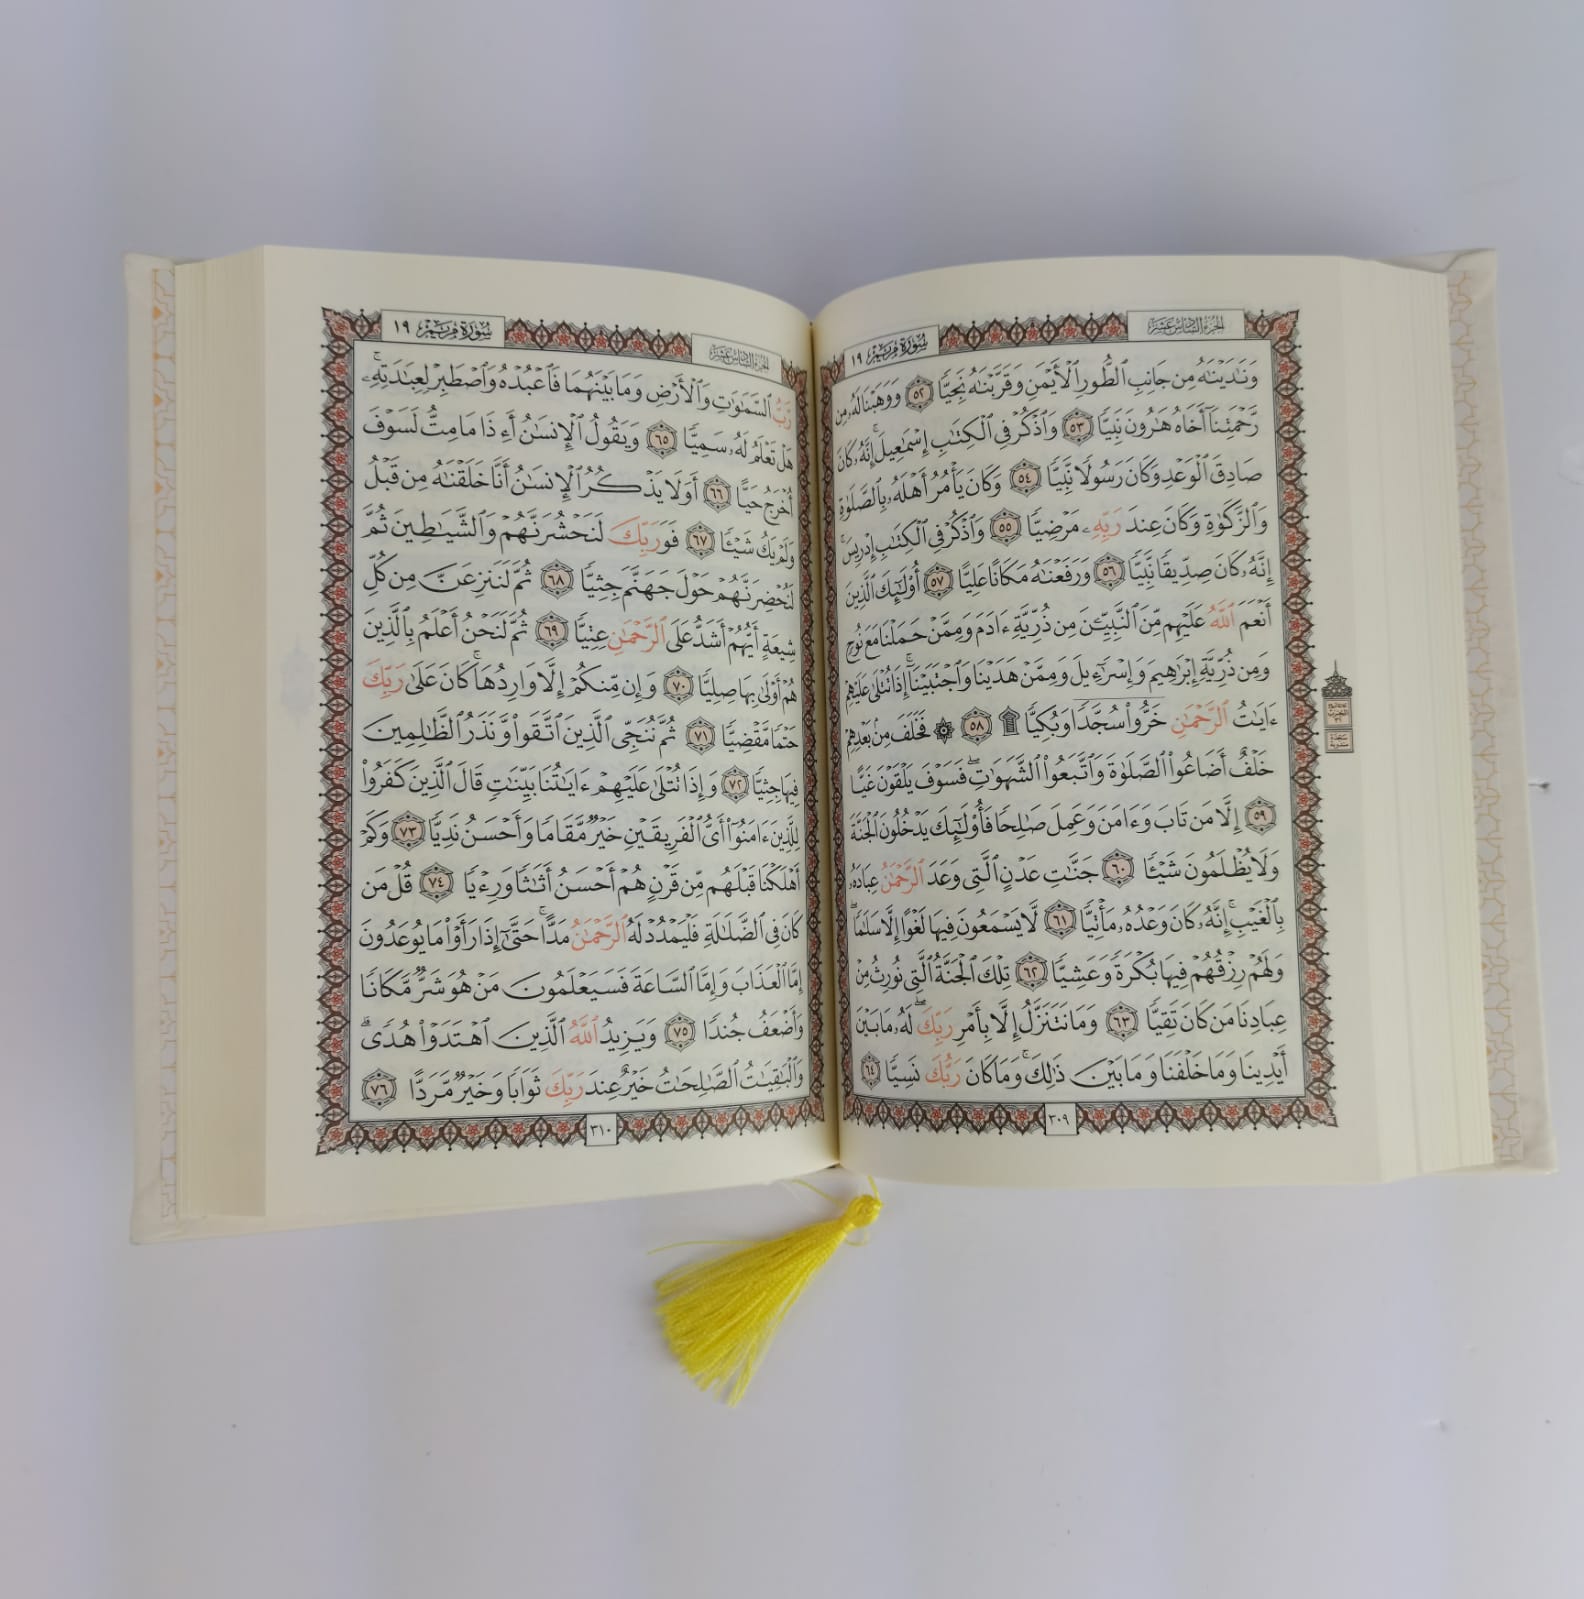 الجزء السادس عشر
سورة مريم ١٩
وَنَٰدَيْنَٰهُ مِن جَانِبِ ٱلطُّورِ ٱلْأَيْمَنِ وَقَرَّبْنَٰهُ نَجِيًّا ٥٢ وَوَهَبْنَا لَهُۥ مِن
رَّحْمَتِنَآ أَخَاهُ هَٰرُونَ نَبِيًّا ٥٣ وَٱذْكُرْ فِى ٱلْكِتَٰبِ إِسْمَٰعِيلَ ۚ إِنَّهُۥ كَانَ
صَادِقَ ٱلْوَعْدِ وَكَانَ رَسُولًا نَّبِيًّا ٥٤ وَكَانَ يَأْمُرُ أَهْلَهُۥ بِٱلصَّلَوٰةِ
وَٱلزَّكَوٰةِ وَكَانَ عِندَ رَبِّهِۦ مَرْضِيًّا ٥٥ وَٱذْكُرْ فِى ٱلْكِتَٰبِ إِدْرِيسَ ۚ
إِنَّهُۥ كَانَ صِدِّيقًا نَّبِيًّا ٥٦ وَرَفَعْنَٰهُ مَكَانًا عَلِيًّا ٥٧ أُو۟لَٰٓئِكَ ٱلَّذِينَ
أَنْعَمَ ٱللَّهُ عَلَيْهِم مِّنَ ٱلنَّبِيِّۦنَ مِن ذُرِّيَّةِ ءَادَمَ وَمِمَّنْ حَمَلْنَا مَعَ نُوحٍ
وَمِن ذُرِّيَّةِ إِبْرَٰهِيمَ وَإِسْرَٰٓءِيلَ وَمِمَّنْ هَدَيْنَا وَٱجْتَبَيْنَآ ۚ إِذَا تُتْلَىٰ عَلَيْهِمْ
ءَايَٰتُ ٱلرَّحْمَٰنِ خَرُّوا۟ سُجَّدًا وَبُكِيًّا ۩ ٥٨ ۞ فَخَلَفَ مِنۢ بَعْدِهِمْ
خَلْفٌ أَضَاعُوا۟ ٱلصَّلَوٰةَ وَٱتَّبَعُوا۟ ٱلشَّهَوَٰتِ ۖ فَسَوْفَ يَلْقَوْنَ غَيًّا
٥٩ إِلَّا مَن تَابَ وَءَامَنَ وَعَمِلَ صَٰلِحًا فَأُو۟لَٰٓئِكَ يَدْخُلُونَ ٱلْجَنَّةَ
وَلَا يُظْلَمُونَ شَيْـًٔا ٦٠ جَنَّٰتِ عَدْنٍ ٱلَّتِى وَعَدَ ٱلرَّحْمَٰنُ عِبَادَهُۥ
بِٱلْغَيْبِ ۚ إِنَّهُۥ كَانَ وَعْدُهُۥ مَأْتِيًّا ٦١ لَّا يَسْمَعُونَ فِيهَا لَغْوًا إِلَّا سَلَٰمًا ۖ
وَلَهُمْ رِزْقُهُمْ فِيهَا بُكْرَةً وَعَشِيًّا ٦٢ تِلْكَ ٱلْجَنَّةُ ٱلَّتِى نُورِثُ مِنْ
عِبَادِنَا مَن كَانَ تَقِيًّا ٦٣ وَمَا نَتَنَزَّلُ إِلَّا بِأَمْرِ رَبِّكَ ۖ لَهُۥ مَا بَيْنَ
أَيْدِينَا وَمَا خَلْفَنَا وَمَا بَيْنَ ذَٰلِكَ ۚ وَمَا كَانَ رَبُّكَ نَسِيًّا ٦٤
٣٠٩
الجزء السادس عشر
سورة مريم ١٩
رَّبُّ ٱلسَّمَٰوَٰتِ وَٱلْأَرْضِ وَمَا بَيْنَهُمَا فَٱعْبُدْهُ وَٱصْطَبِرْ لِعِبَٰدَتِهِۦ ۚ
هَلْ تَعْلَمُ لَهُۥ سَمِيًّا ٦٥ وَيَقُولُ ٱلْإِنسَٰنُ أَءِذَا مَا مِتُّ لَسَوْفَ
أُخْرَجُ حَيًّا ٦٦ أَوَلَا يَذْكُرُ ٱلْإِنسَٰنُ أَنَّا خَلَقْنَٰهُ مِن قَبْلُ
وَلَمْ يَكُ شَيْـًٔا ٦٧ فَوَرَبِّكَ لَنَحْشُرَنَّهُمْ وَٱلشَّيَٰطِينَ ثُمَّ
لَنُحْضِرَنَّهُمْ حَوْلَ جَهَنَّمَ جِثِيًّا ٦٨ ثُمَّ لَنَنزِعَنَّ مِن كُلِّ
شِيعَةٍ أَيُّهُمْ أَشَدُّ عَلَى ٱلرَّحْمَٰنِ عِتِيًّا ٦٩ ثُمَّ لَنَحْنُ أَعْلَمُ بِٱلَّذِينَ
هُمْ أَوْلَىٰ بِهَا صِلِيًّا ٧٠ وَإِن مِّنكُمْ إِلَّا وَارِدُهَا ۚ كَانَ عَلَىٰ رَبِّكَ
حَتْمًا مَّقْضِيًّا ٧١ ثُمَّ نُنَجِّى ٱلَّذِينَ ٱتَّقَوا۟ وَّنَذَرُ ٱلظَّٰلِمِينَ
فِيهَا جِثِيًّا ٧٢ وَإِذَا تُتْلَىٰ عَلَيْهِمْ ءَايَٰتُنَا بَيِّنَٰتٍ قَالَ ٱلَّذِينَ كَفَرُوا۟
لِلَّذِينَ ءَامَنُوٓا۟ أَىُّ ٱلْفَرِيقَيْنِ خَيْرٌ مَّقَامًا وَأَحْسَنُ نَدِيًّا ٧٣ وَكَمْ
أَهْلَكْنَا قَبْلَهُم مِّن قَرْنٍ هُمْ أَحْسَنُ أَثَٰثًا وَرِءْيًا ٧٤ قُلْ مَن
كَانَ فِى ٱلضَّلَٰلَةِ فَلْيَمْدُدْ لَهُ ٱلرَّحْمَٰنُ مَدًّا ۚ حَتَّىٰٓ إِذَا رَأَوْا۟ مَا يُوعَدُونَ
إِمَّا ٱلْعَذَابَ وَإِمَّا ٱلسَّاعَةَ فَسَيَعْلَمُونَ مَنْ هُوَ شَرٌّ مَّكَانًا
وَأَضْعَفُ جُندًا ٧٥ وَيَزِيدُ ٱللَّهُ ٱلَّذِينَ ٱهْتَدَوْا۟ هُدًى ۗ
وَٱلْبَٰقِيَٰتُ ٱلصَّٰلِحَٰتُ خَيْرٌ عِندَ رَبِّكَ ثَوَابًا وَخَيْرٌ مَّرَدًّا ٧٦
٣١٠